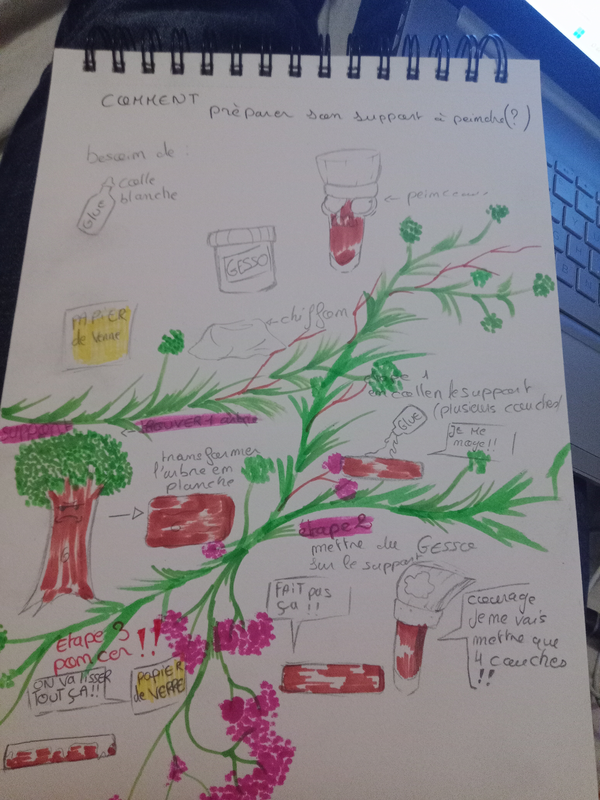 COMMENT préparer son support à peindre(?)
besoin de :
colle
blanche
Glue
GESSO
PAPIER
de Verre
chiffon
support
TROUVER 1 arbre
transformer
l'arbre en
planche
1
encoller le support
(plusieurs couches)
Glue
Je me
noye!!
étape 2
mettre du GESSO
sur le support
FAIT pas
ça !!
courage
Je me vais
mettre que
4 couches
!!
Etape 3
poncer !!
ON VA LISSER
TOUT ÇA!!
PAPIER
de VERRE